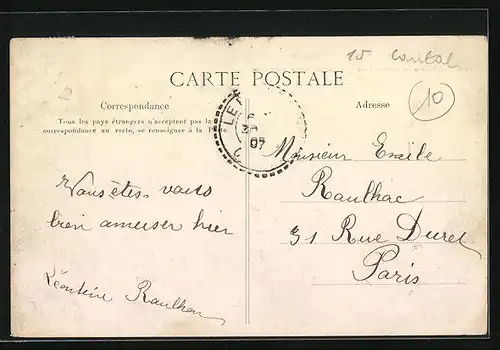 15 Cantal
CARTE POSTALE
Correspondance
Adresse
10
Tous les pays étrangers n'acceptent pas la
correspondance au recto, se renseigner à la Poste
LE
30
07
Monsieur Emile
Raulhac
31 Rue Duret
Paris
Vous êtes-vous
bien amuser hier
Léontine Raulhac